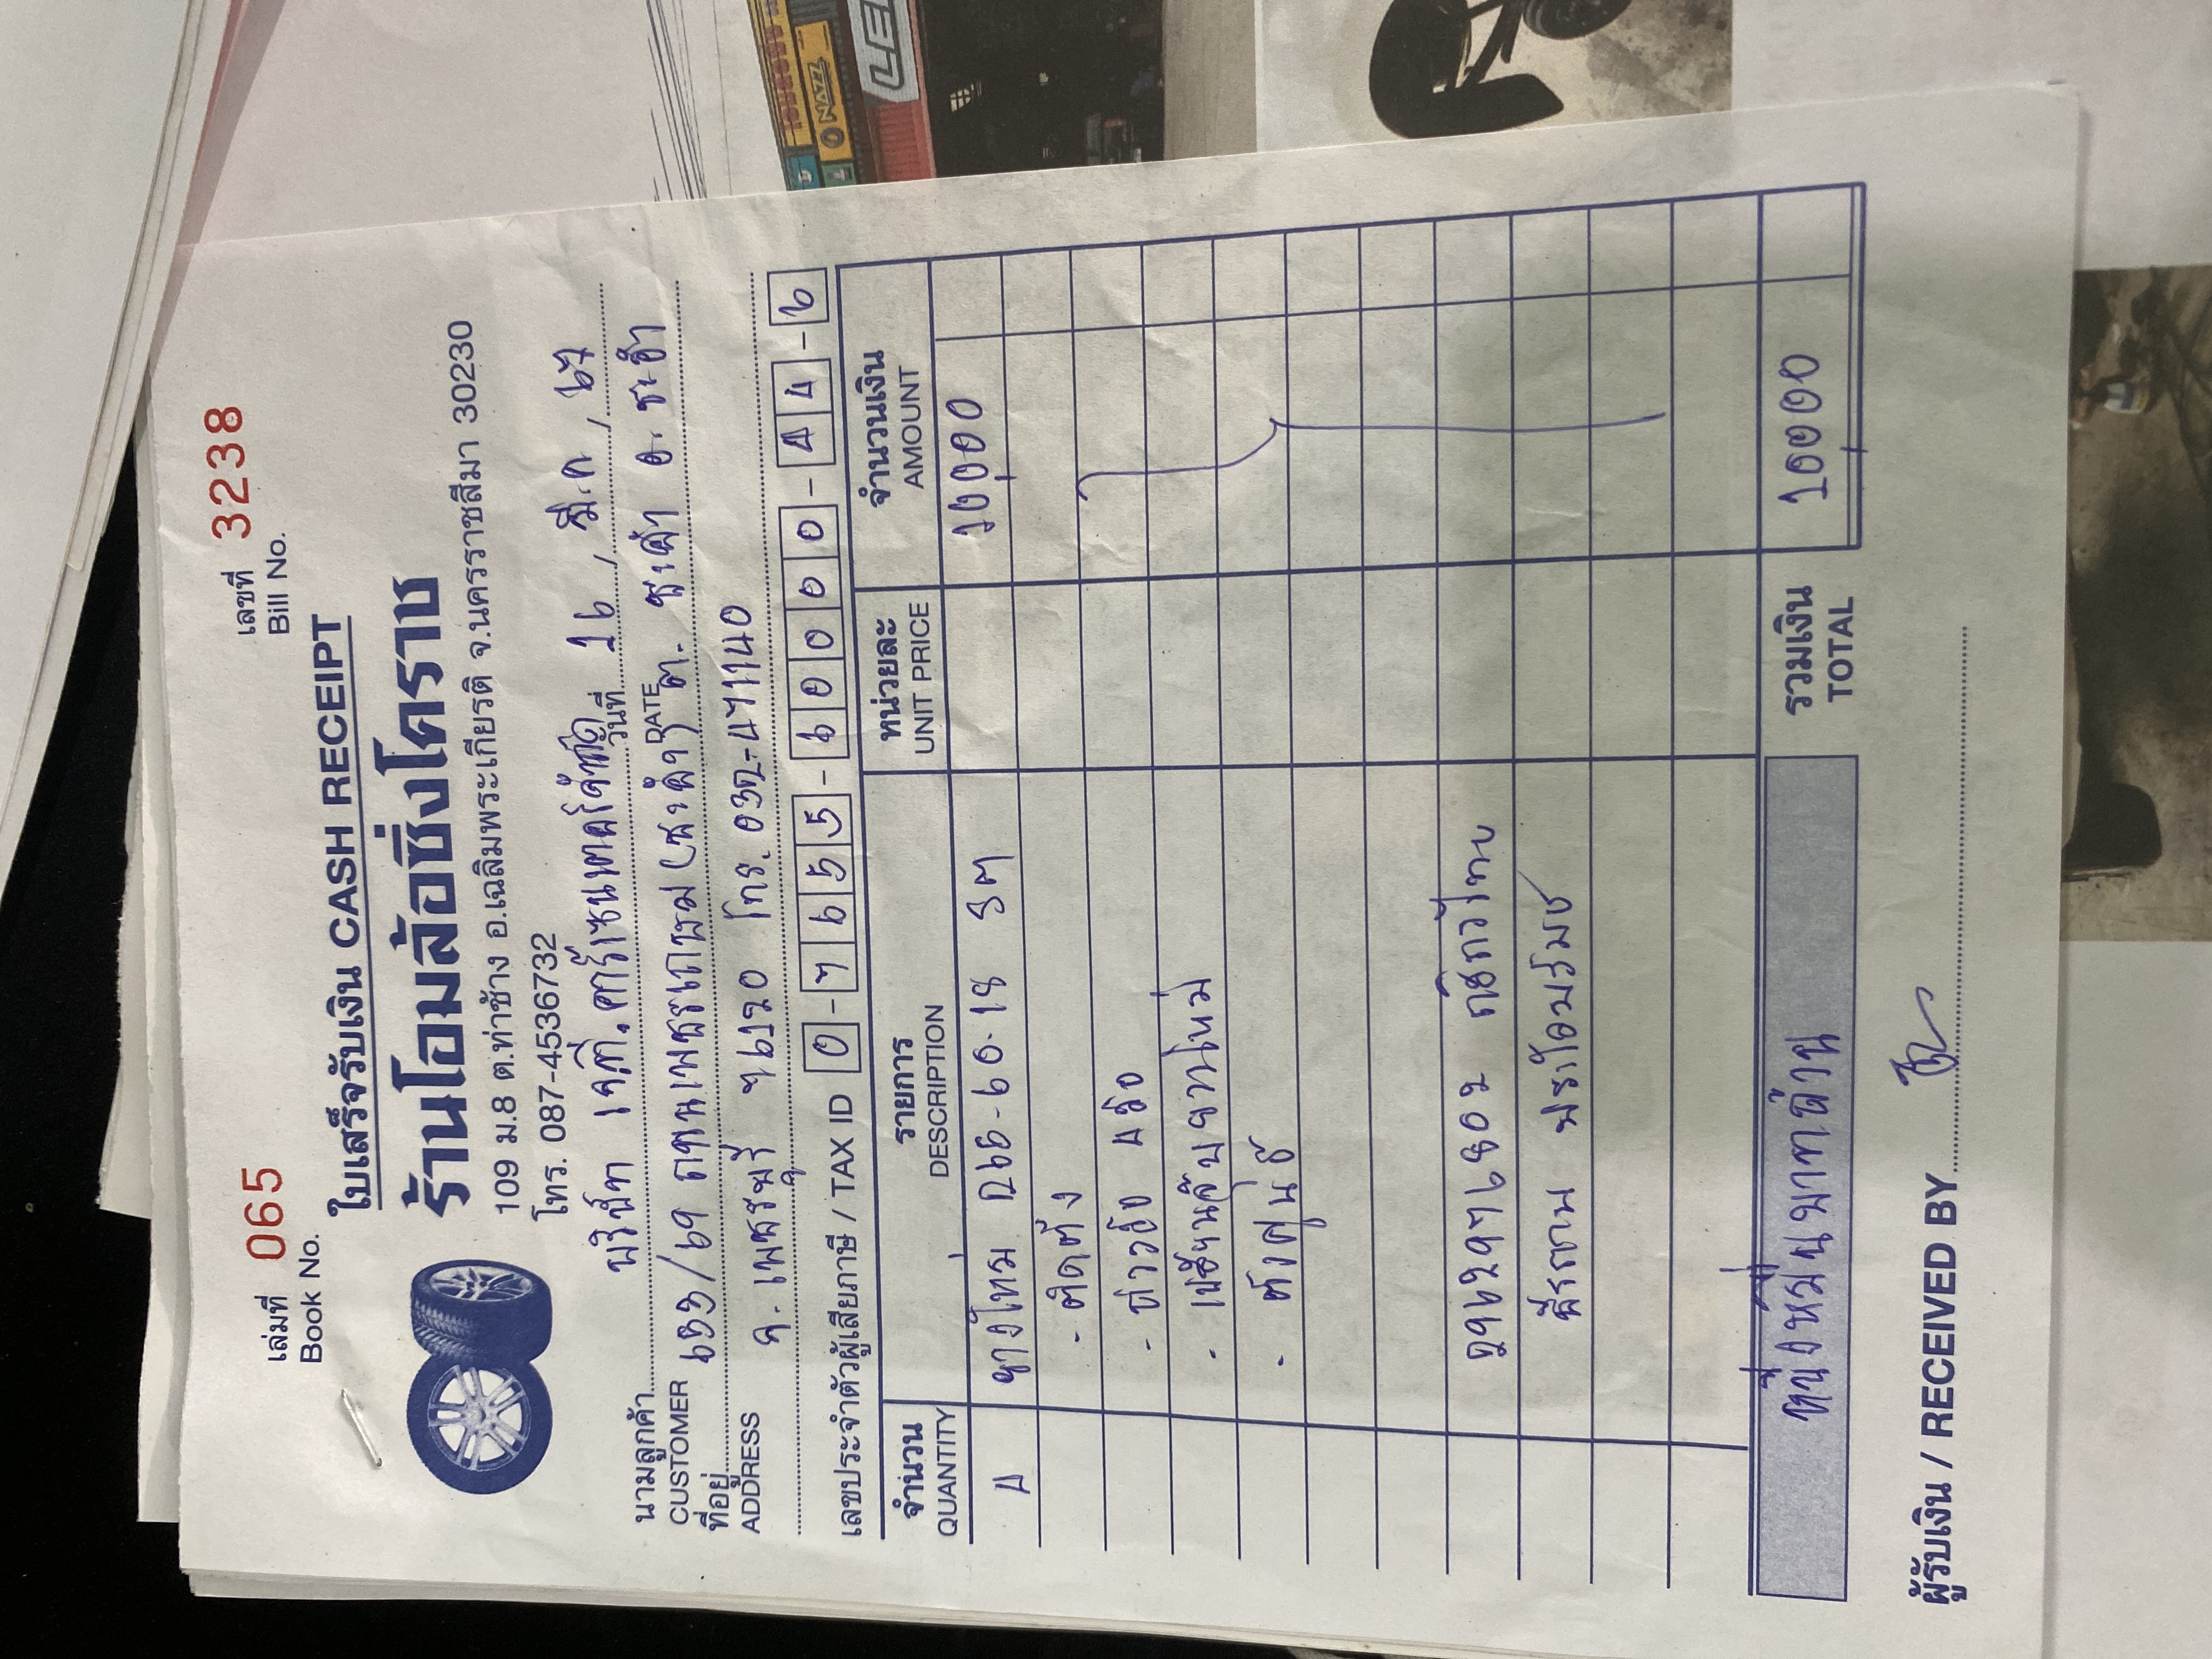 เล่มที่ 065 เลขที่ 3238
Book No. Bill No.
ใบเสร็จรับเงิน CASH RECEIPT
ร้านโอมล้อซิ่งโคราช
109 ม.8 ต.ท่าช้าง อ.เฉลิมพระเกียรติ จ.นครราชสีมา 30230
โทร. 087-4536732
นามลูกค้า บริษัท เจ.ที.คาร์เซนเตอร์จำกัด วันที่ 16 / มี.ค / 67
CUSTOMER DATE
ที่อยู่ 699/69 ถนนเพชรเกษม (ชะอำ) ต. ชะอำ อ. ชะอำ
ADDRESS จ. เพชรบุรี 76120 โทร. 032-471140
เลขประจำตัวผู้เสียภาษี / TAX ID 0-7655-60000-44-6
จำนวน รายการ หน่วยละ จำนวนเงิน
QUANTITY DESCRIPTION UNIT PRICE AMOUNT
4 ยางไทย 265-60-18 10,000
- ติดตั้ง
- ถ่วงล้อ 4 ล้อ
- ตั้งศูนย์
กสิกรไทย
หนึ่งหมื่นบาทถ้วน รวมเงิน 10,000
TOTAL
ผู้รับเงิน / RECEIVED BY
NAZZL
LE